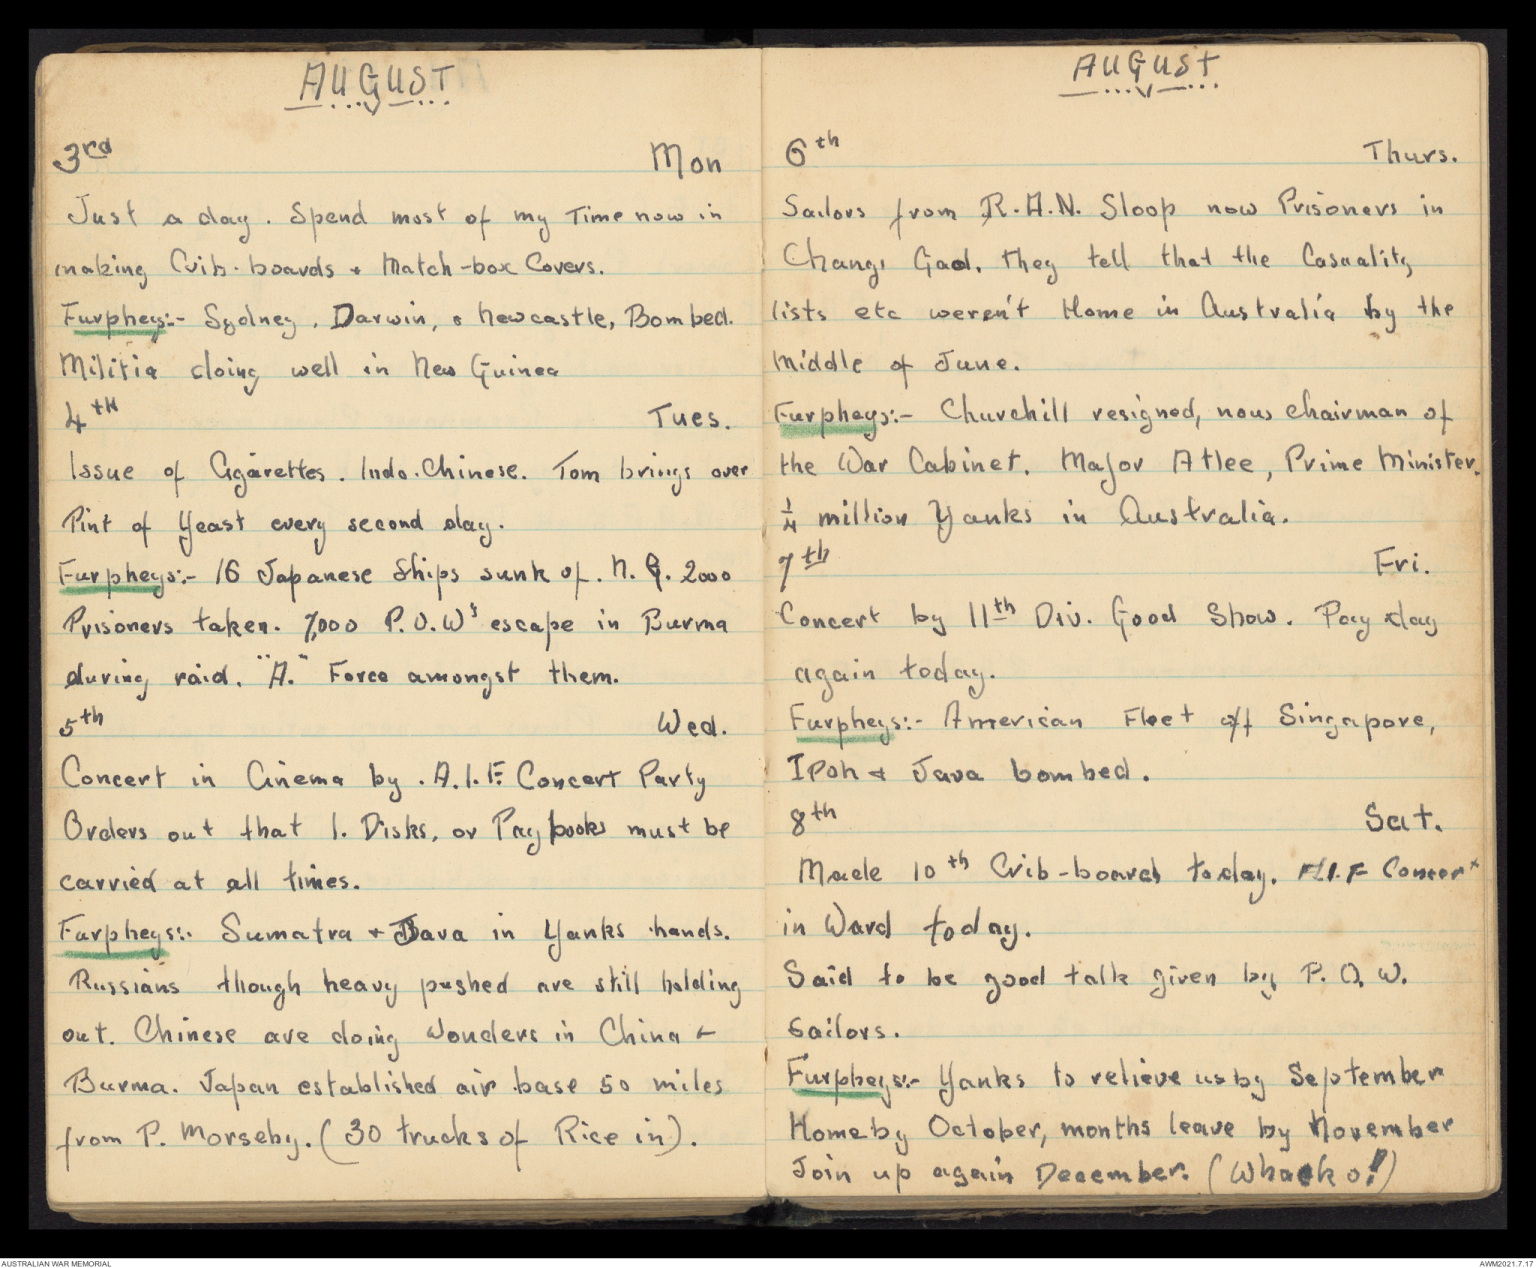 AUGUST
3rd Mon
Just a day. Spend most of my Time now in
making Crib-boards + Match-box Covers.
Furpheys:- Sydney, Darwin, & Newcastle, Bombed.
Militia doing well in New Guinea
4th Tues.
Issue of Cigarettes. Indo-Chinese. Tom brings over
Pint of Yeast every second day.
Furpheys:- 16 Japanese Ships sunk of. N.G. 2000
Prisoners taken. 7,000 P.O.W's escape in Burma
during raid. "A." Force amongst them.
5th Wed.
Concert in Cinema by .A.I.F. Concert Party
Orders out that I. Disks, or Pay books must be
carried at all times.
Furpheys:- Sumatra + Java in Yanks hands.
Russians though heavy pushed are still holding
out. Chinese are doing wonders in China +
Burma. Japan established air base 50 miles
from P. Morseby. (30 trucks of Rice in).
AUGUST
6th Thurs.
Sailors from R.A.N. Sloop now Prisoners in
Changi Gaol. They tell that the Casuality
lists etc weren't Home in Australia by the
middle of June.
Furpheys:- Churchill resigned, now Chairman of
the War Cabinet. Major Atlee, Prime Minister.
1/4 million Yanks in Australia.
7th Fri.
Concert by 11th Div. Good Show. Pay day
again today.
Furpheys:- American Fleet off Singapore,
Ipoh + Java bombed.
8th Sat.
Made 10th Crib-board today. A.I.F Concert
in Ward today.
Said to be good talk given by P.O.W.
Sailors.
Furpheys:- Yanks to relieve us by September
Home by October, months leave by November
Join up again December. (Whacko!)
AUSTRALIAN WAR MEMORIAL
AWM2021.7.17